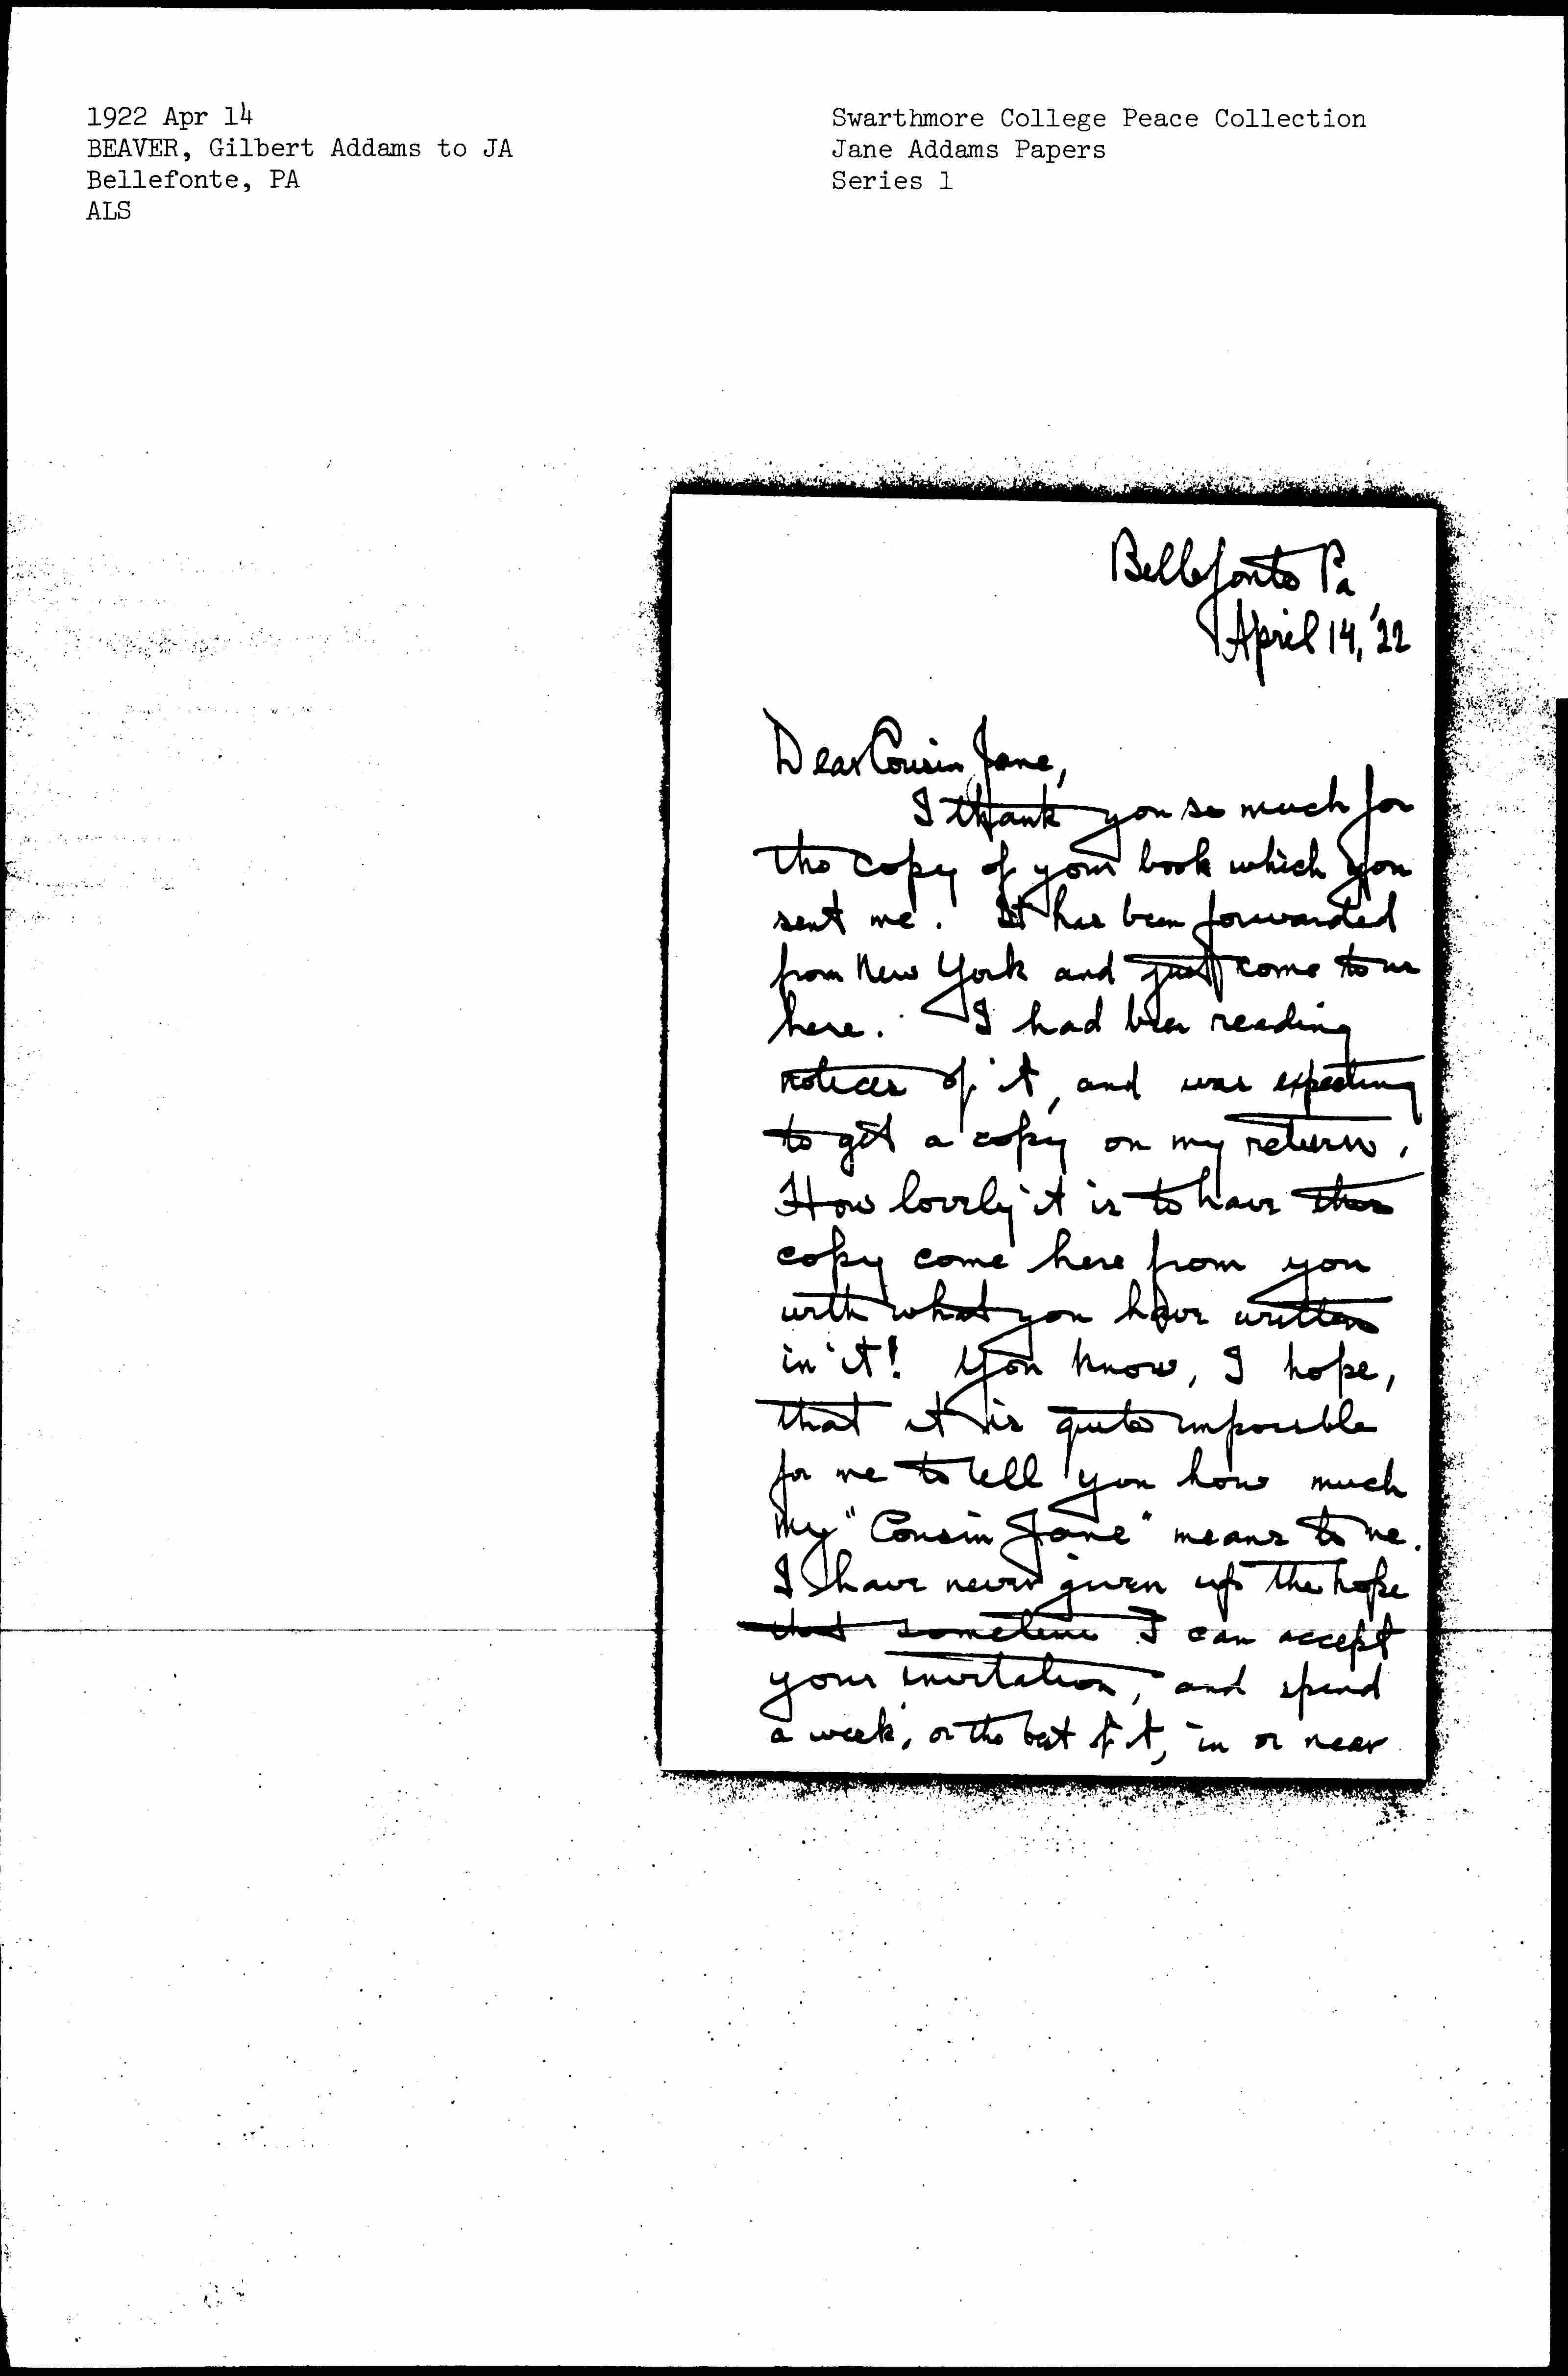 1922 Apr 14
BEAVER, Gilbert Addams to JA
Bellefonte, PA
ALS
Swarthmore College Peace Collection
Jane Addams Papers
Series 1
Bellefonte Pa
April 14, '22
Dear Cousin Jane,
I thank you so much for
the copy of your book which you
sent me. It has been forwarded
from New York and just come to us
here. I had been reading
notices of it, and was expecting
to get a copy on my return.
How lovely it is to have this
copy come here from you
with what you have written
in it! You know, I hope,
that it is quite impossible
for me to tell you how much
my "Cousin Jane" means to me.
I have never given up the hope
that sometime I can accept
your invitation, and spend
a week, or the best of it, in or near